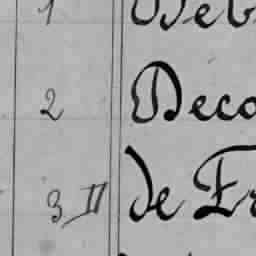 1 Deb
2 Deco
3 II de Fr